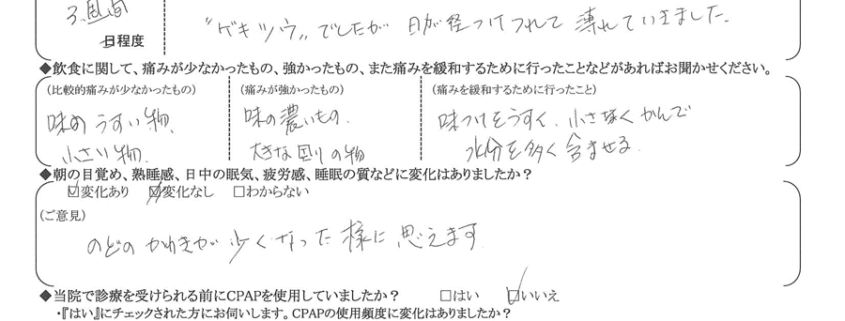 3週間
〝ゲキツウ〟でしたが 日が経つにつれて 薄れていきました。
日程度
◆飲食に関して、痛みが少なかったもの、強かったもの、また痛みを緩和するために行ったことなどがあればお聞かせください。
(比較的痛みが少なかったもの) (痛みが強かったもの) (痛みを緩和するために行ったこと)
味のうすい物、 味の濃いもの. 味つけをうすく、小さくかんで
小さい物. 大きな固りの物 水分を多く含ませる.
◆朝の目覚め、熟睡感、日中の眠気、疲労感、睡眠の質などに変化はありましたか?
☑変化あり ☑変化なし □わからない
(ご意見)
のどのかわきが少くなった様に思えます
◆当院で診療を受けられる前にCPAPを使用していましたか? □はい ☑いいえ
・『はい』にチェックされた方にお伺いします。CPAPの使用頻度に変化はありましたか?